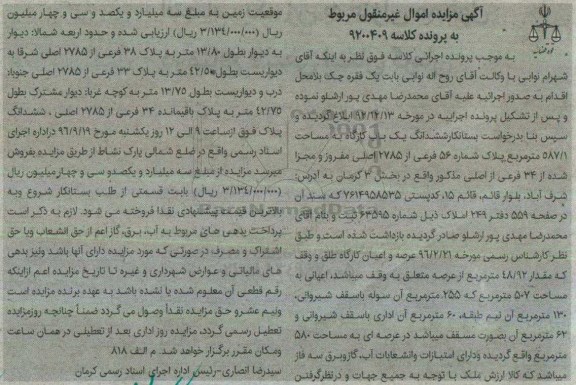 آگهی مزایده اموال غیرمنقول مربوط
به پرونده کلاسه ۹۲۰۰۴۰۹
به موجب پرونده اجرائی کلاسه فوق نظر به اینکه آقای
شهرام نوابی با وکالت آقای روح آله نوابی بابت یک فقره چک بلامحل
اقدام به صدور اجرائیه علیه آقای محمدرضا مهدی پور ارشلو نموده
و پس از تشکیل پرونده اجراییه در مورخه ۹۲/۱۲/۱۳ ابلاغ گردیده و
سپس بنا بدرخواست بستانکار ششدانگ یک باب کارگاه به مساحت
۵۸۷/۱ مترمربع پلاک شماره ۵۶ فرعی از ۲۷۸۵ اصلی مفروز و مجزا
شده از ۳۴ فرعی از اصلی مذکور واقع در بخش ۳ کرمان به آدرس:
شرف آباد، بلوار قائم، قائم ۱۵، کدپستی ۷۶۱۴۹۵۸۵۳۵ که سند آن
در صفحه ۵۵۹ دفتر ۲۴۹ املاک ذیل شماره ۶۳۵۹۵ ثبت و بنام آقای
محمدرضا مهدی پور ارشلو صادر گردیده بازداشت شده است و طبق
نظر کارشناس رسمی مورخه ۹۶/۲/۲۱ عرصه و اعیان کارگاه طلق و وقف
که مقدار ۴۸/۹۲ مترمربع از عرصه متعلق به وقف میباشد، اعیانی به
مساحت ۵۰۷ مترمربع که ۲۵۵ مترمربع آن سوله باسقف شیروانی،
۱۳۰ مترمربع آن نیم طبقه، ۶۰ مترمربع آن اداری باسقف شیروانی و
۶۲ مترمربع آن بصورت مسقف میباشد در عرصه ای به مساحت ۵۸۰
مترمربع واقع گردیده و دارای امتیازات و انشعابات آب، گاز و برق سه فاز
میباشد که کلا ارزش ملک با توجه به جمیع جهات و در نظر گرفتن
موقعیت زمین به مبلغ سه میلیارد و یکصد و سی و چهار میلیون
ریال (۳/۱۳۴/۰۰۰/۰۰۰ ریال) ارزیابی شده و حدود اربعه شمالا: دیوار
به دیوار بطول ۱۳/۸۰ متر به پلاک ۳۸ فرعی از ۲۷۸۵ اصلی شرقا به
دیواریست بطول ۴۲/۵۰ متر به پلاک ۳۳ فرعی از ۲۷۸۵ اصلی جنوبا:
درب و دیواریست بطول ۱۳/۷۵ متر به کوچه غربا: دیوار مشترک بطول
۴۲/۷۵ متر به پلاک باقیمانده ۳۴ فرعی از ۲۷۸۵ اصلی، ششدانگ
پلاک فوق از ساعت ۹ الی ۱۲ روز یکشنبه مورخ ۹۶/۹/۱۹ در اداره اجرای
اسناد رسمی واقع در ضلع شمالی پارک نشاط از طریق مزایده بفروش
میرسد مزایده از مبلغ سه میلیارد و یکصد و سی و چهار میلیون ریال
(۳/۱۳۴/۰۰۰/۰۰۰ ریال) بابت قسمتی از طلب بستانکار شروع و به
بالاترین قیمت پیشنهادی نقدا فروخته می شود. لازم به ذکر است
پرداخت بدهی های مربوط به آب، برق، گاز اعم از حق انشعاب و یا حق
اشتراک و مصرف در صورتی که مورد مزایده دارای آنها باشد و نیز بدهی
های مالیاتی و عوارض شهرداری و غیره تا تاریخ مزایده اعم از اینکه
رقم قطعی آن معلوم شده یا نشده باشد به عهده برنده مزایده است
ونیم عشر و حق مزایده نقداً وصول می گردد ضمناً چنانچه روز مزایده
تعطیل رسمی گردد، مزایده روز اداری بعد از تعطیلی در همان ساعت
ومکان مقرر برگزار خواهد شد. م الف ۸۱۸
سیدرضا انصاری-رئیس اداره اجرای اسناد رسمی کرمان